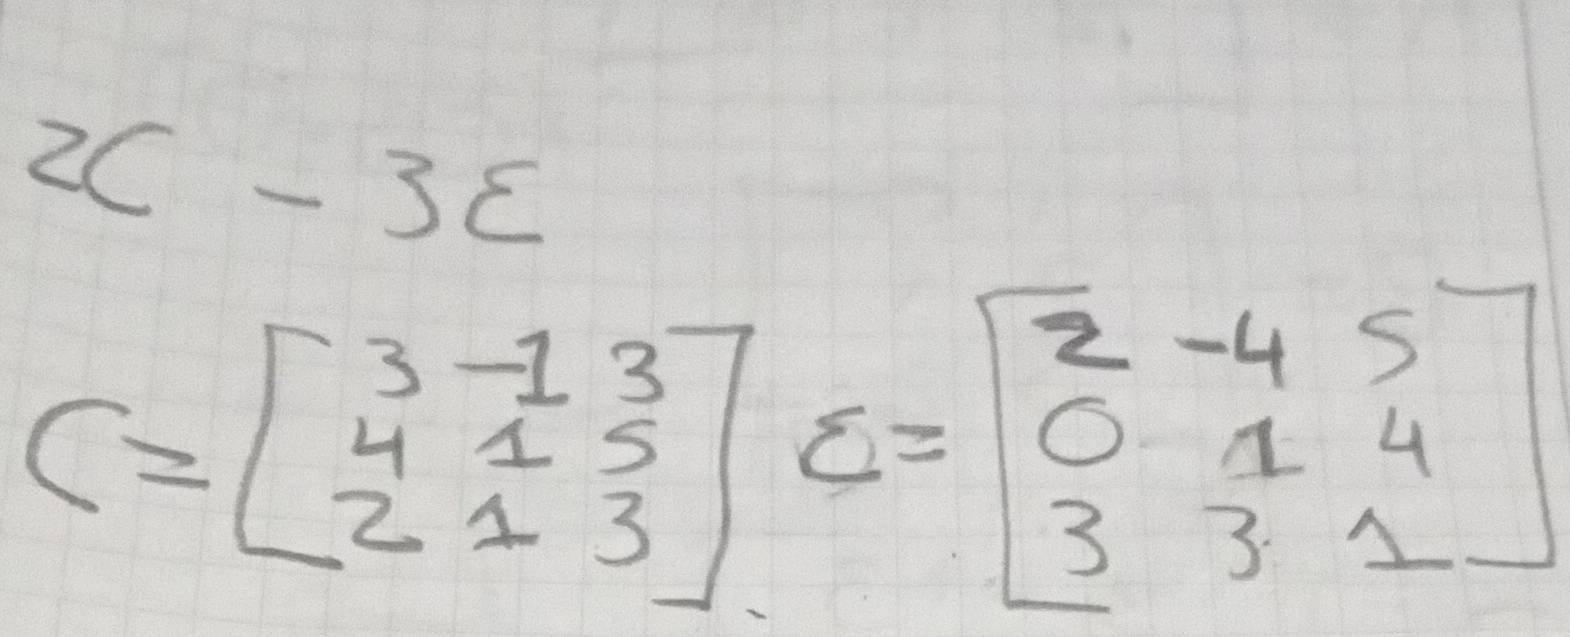 2C - 3ε
C = [3 -1 3
4 1 5
2 1 3] ε = [2 -4 5
0 1 4
3 3 1]